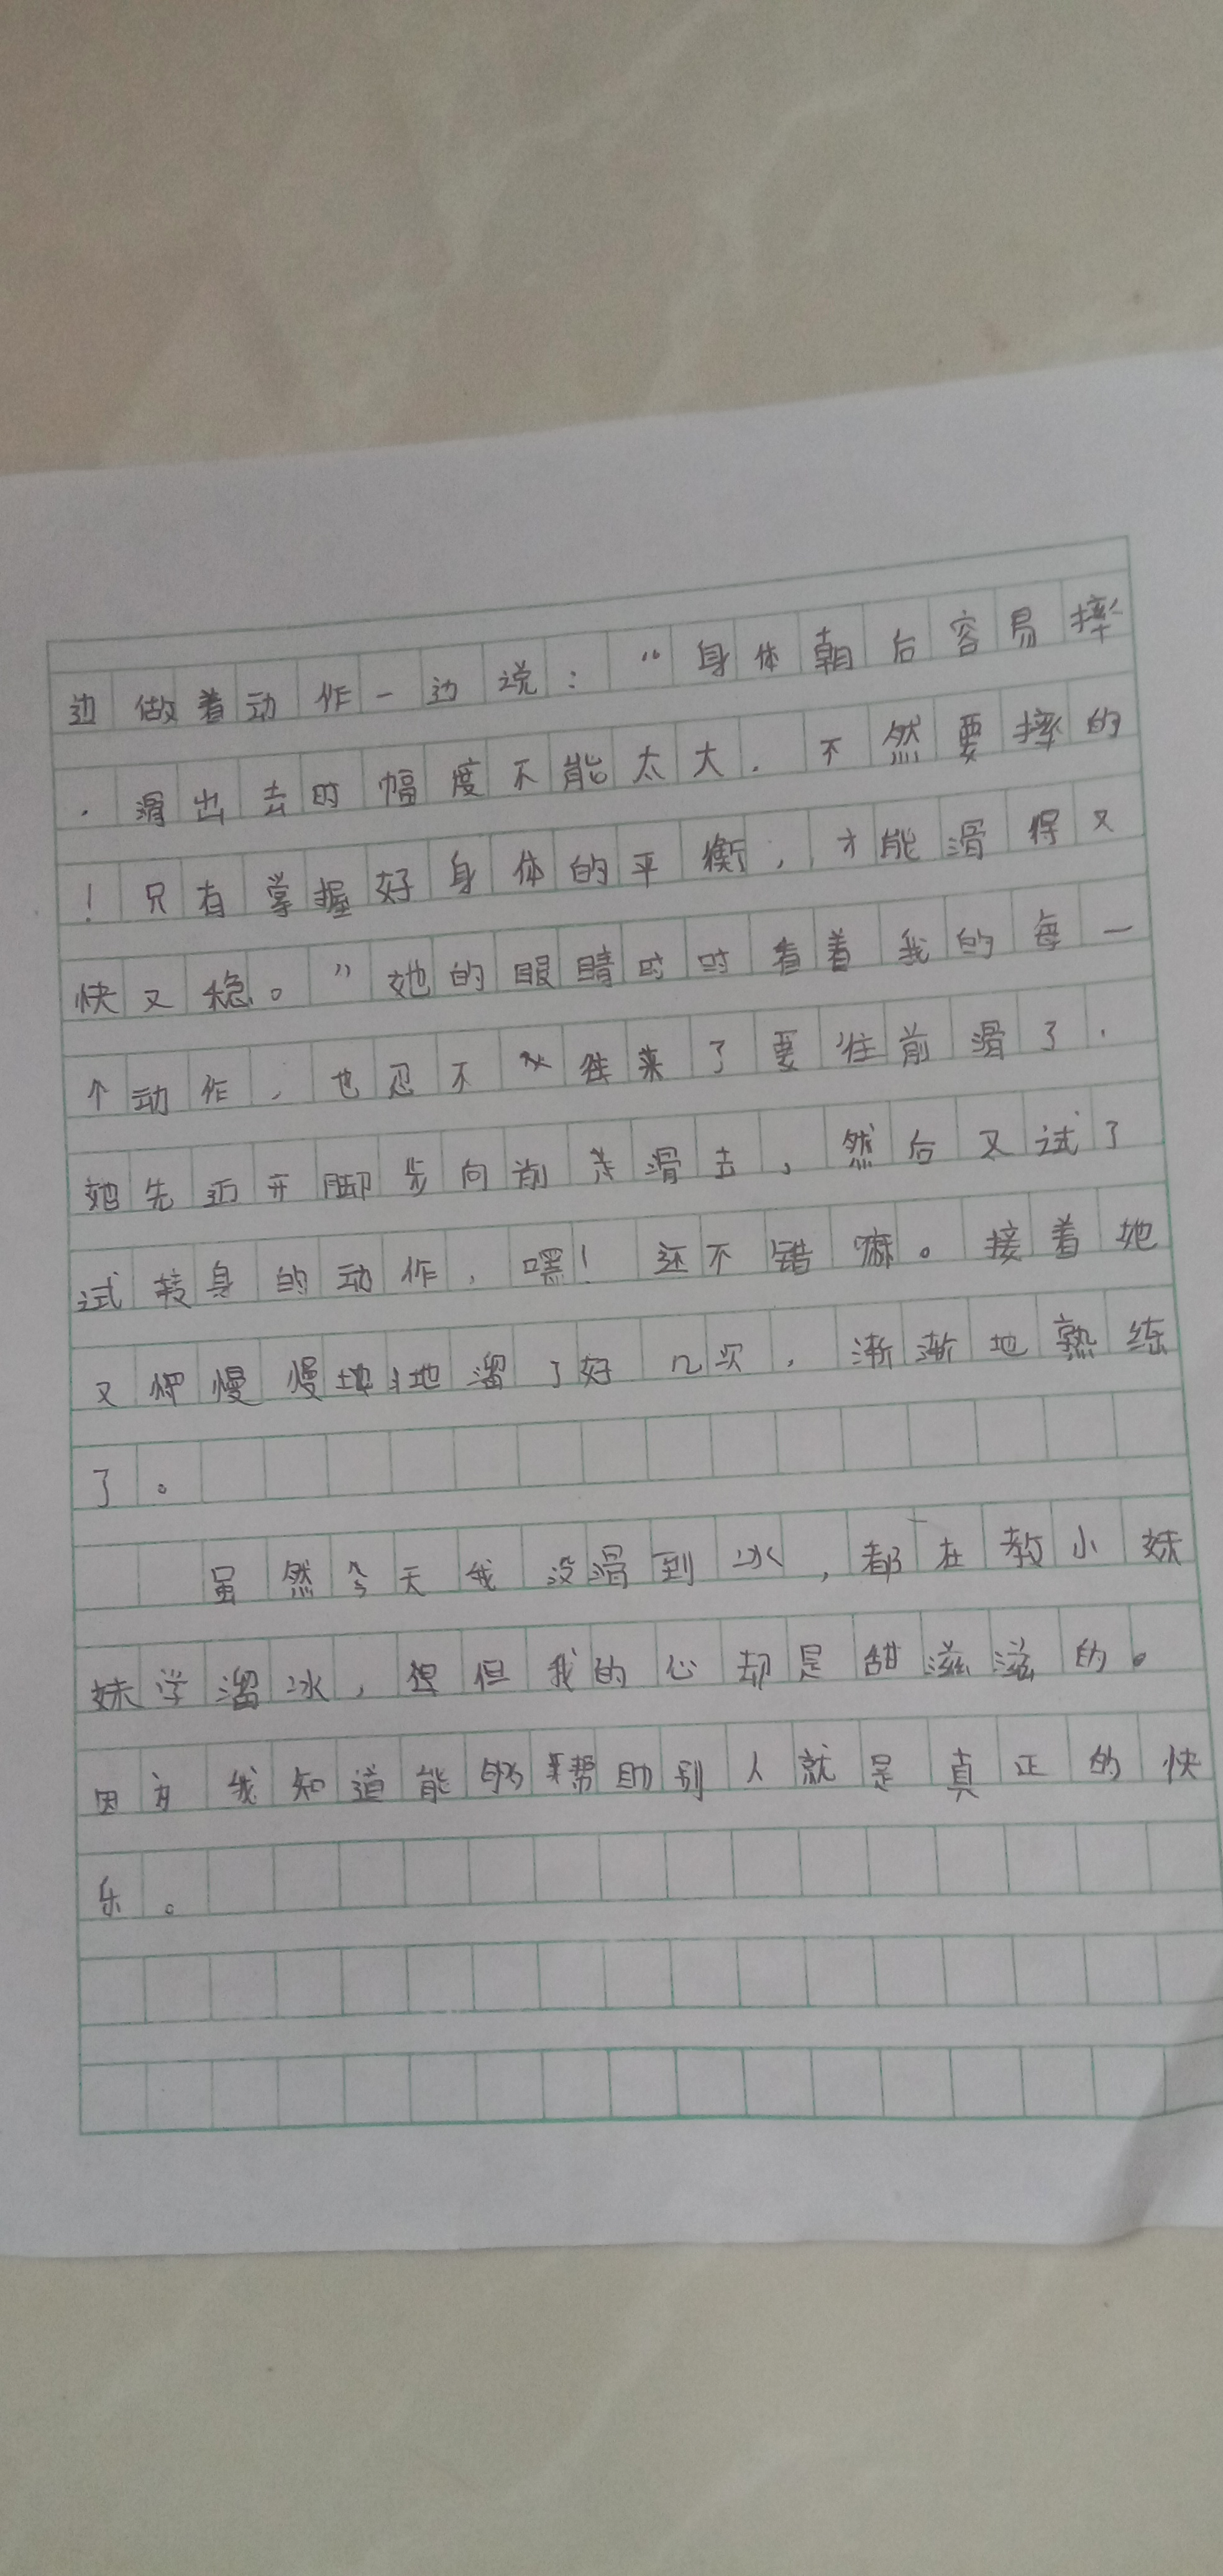 边做着动作一边说：“身体朝后容易摔
．滑出去时幅度不能太大．不然要摔的
！只有掌握好身体的平衡，才能滑得又
快又稳。”她的眼睛时时看着我的每一
个动作，也忍不 了要往前滑了．
她先迈开脚步向前 滑去，然后又试了
试转身的动作，嘿！还不错嘛。接着她
又 慢慢地溜了好几次，渐渐地熟练
了。
虽然今天我没滑到冰，都在教小妹
妹学溜冰，但我的心却是甜滋滋的。
因为我知道能够帮助别人就是真正的快
乐。